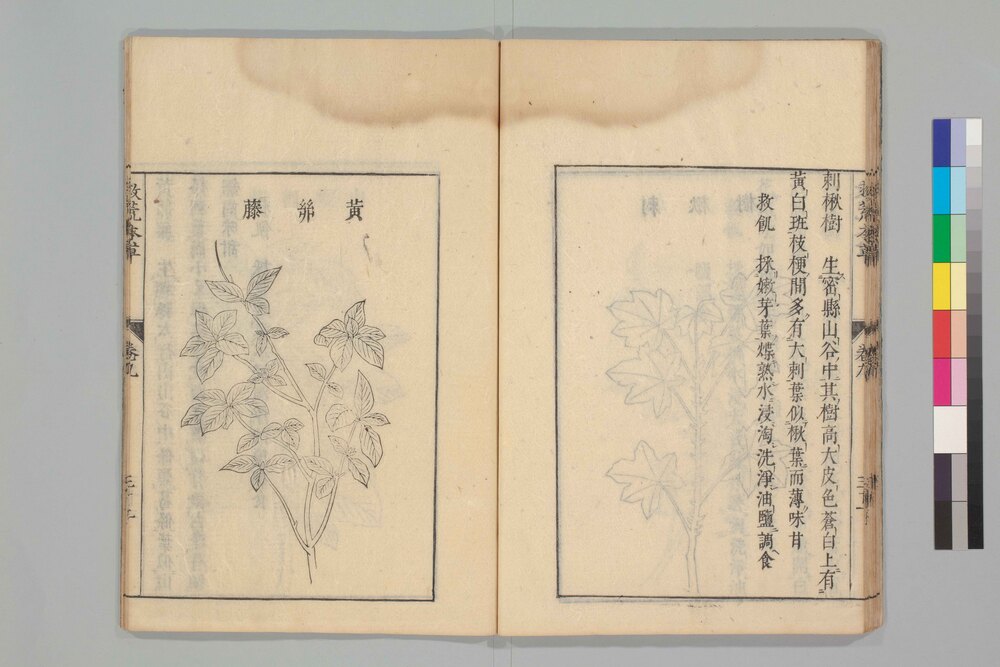 刺楸樹 生密縣山谷中其樹高大皮色蒼白上有
黃白班枝梗間多有大刺葉似楸葉而薄味甘
救飢 採嫩芽葉煠熟水浸淘洗淨油鹽調食
救荒本草
卷九
黃
藤
救荒本草
卷九